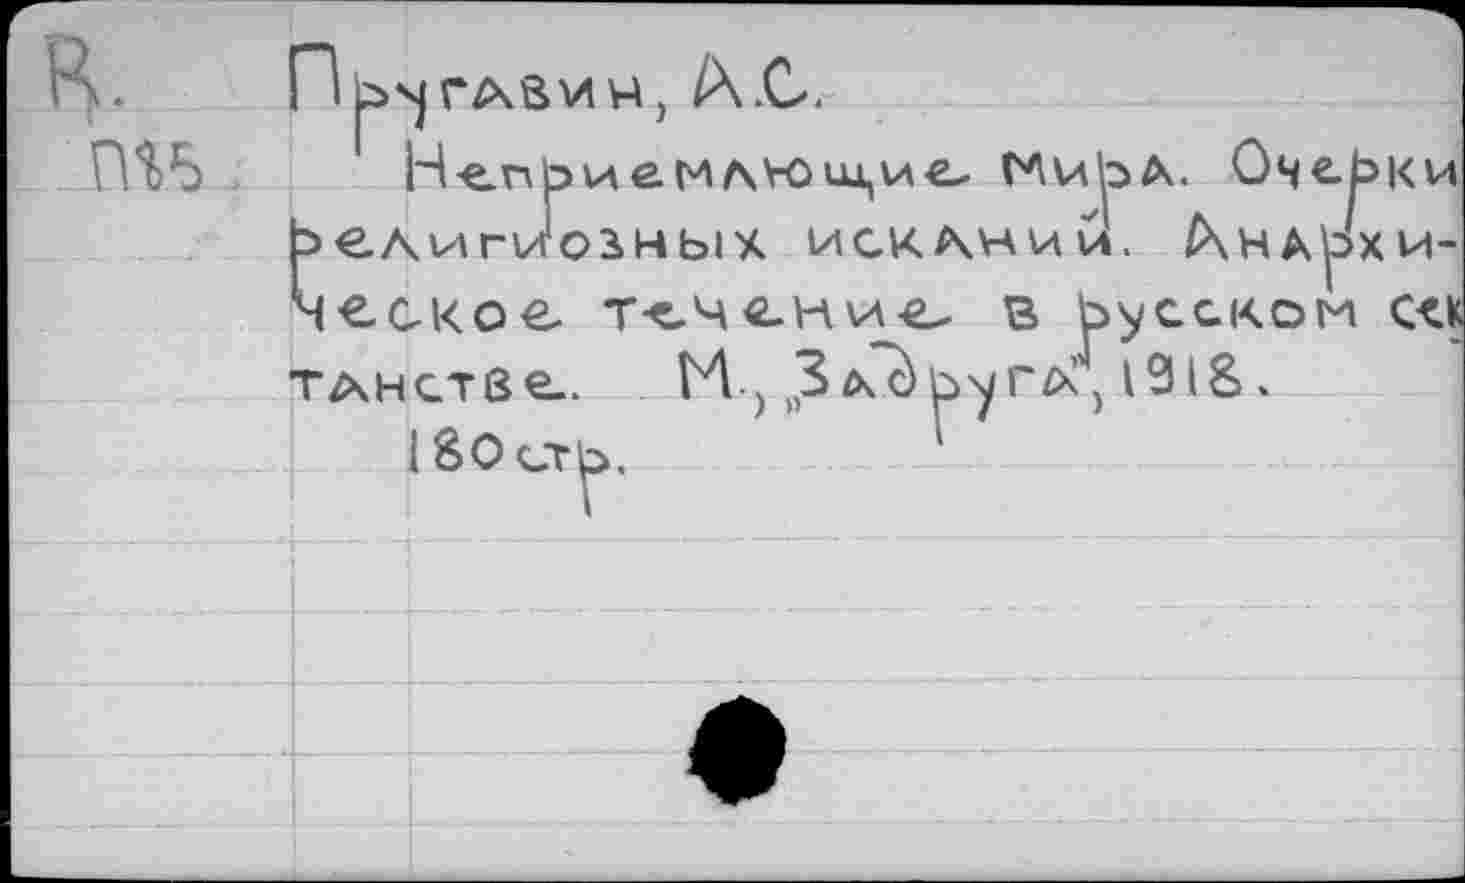 R. Пругавин, А.С.
П%5 Неприемлющие мира. Очерки
религиозных исканий. Анархи-
ческое течение в русском сек
танстве. М., „Задруга", 1918.
180 стр.